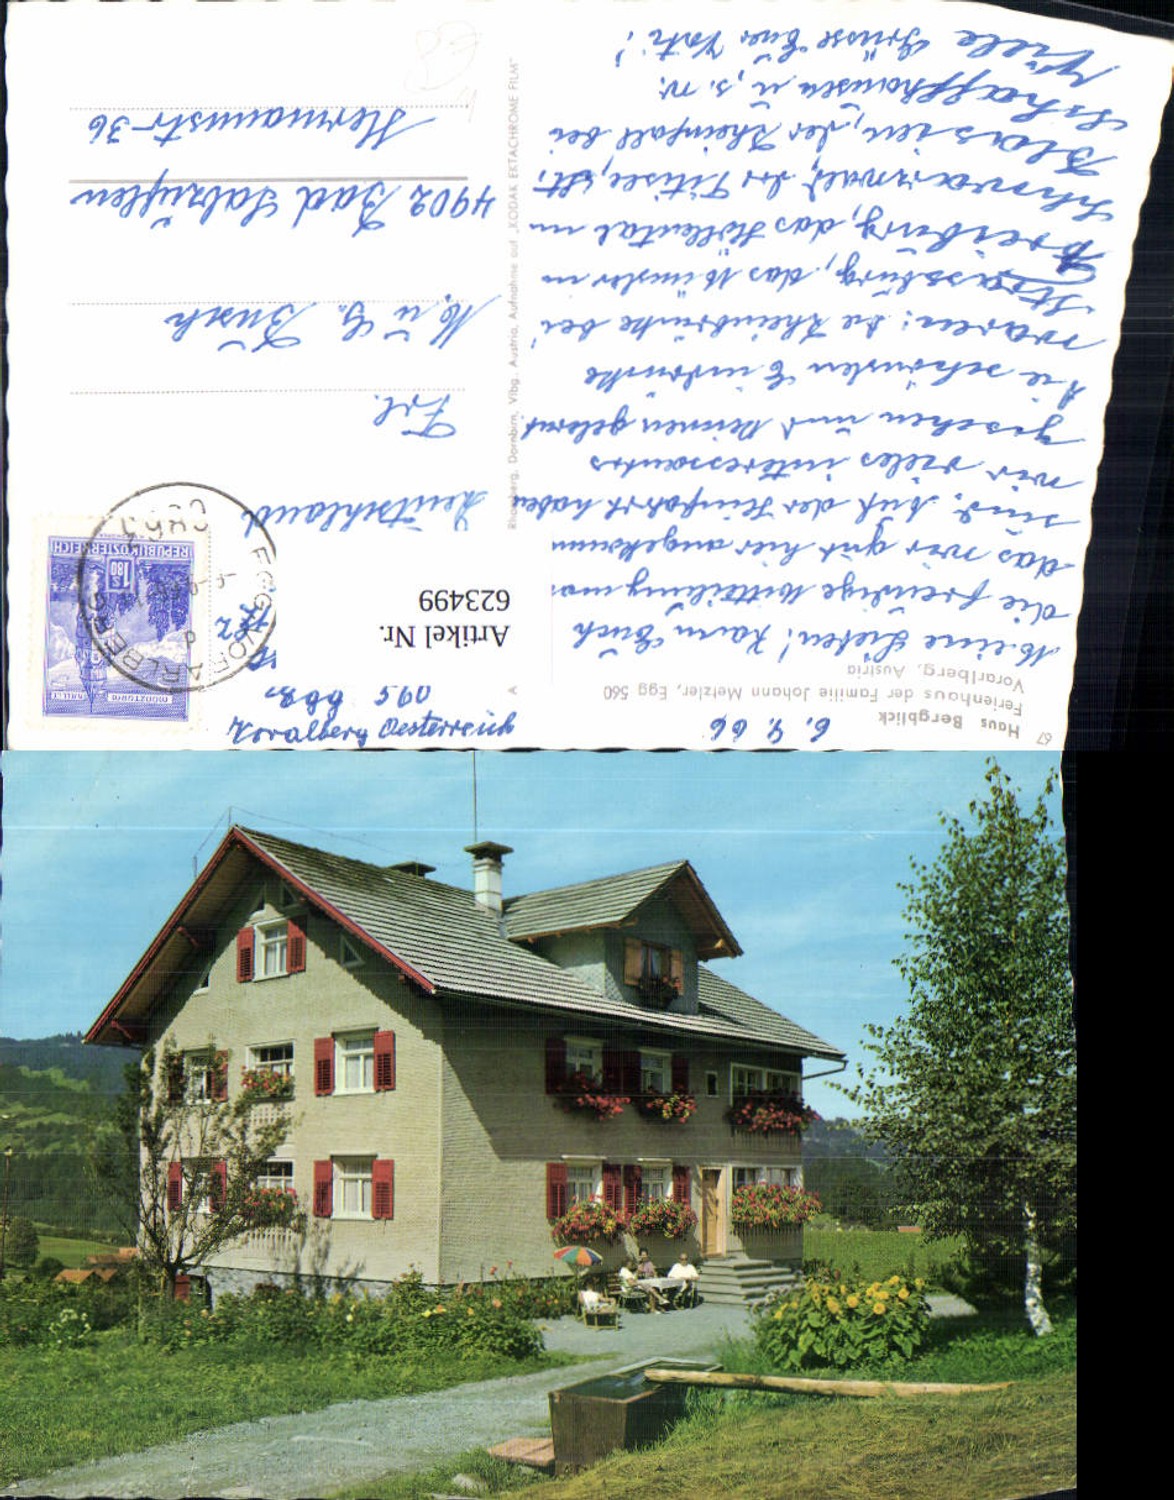 67
Haus Bergblick
Ferienhaus der Familie Johann Metzler, Egg 560
Vorarlberg, Austria
6. 9. 66
Meine Lieben! Kann Euch
die freudige Mitteilung machen
das wir gut hier angekommen
sind. Auf der Hinfahrt haben
wir vieles interessantes
gesehen und kennen gelernt
Die schönsten Eindrücke
waren: die Rheinbrücke bei
Strassburg, das Münster in
Freiburg, das Höllental im
Schwarzwald, der Titisee, St.
Blasien, der Rheinfall bei
Schaffhausen u. s. w.
Viele Grüsse Euer
A
Vorarlberg Oesterreich
Artikel Nr.
623499
REPUBLIK ÖSTERREICH
S 1.80
MÜNZTURM
Deutschland
Frl.
M. u. G. Busch
4902 Bad Salzuflen
Hermannstr-36
Rhomberg, Dornbirn, Vlbg., Austria, Aufnahme auf „KODAK EKTACHROME FILM"